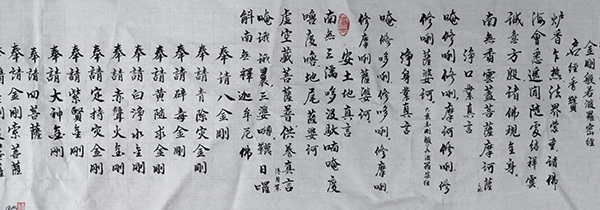 金剛般若波羅密經
爐香乍熱法界蒙熏諸佛
海會悉遙聞隨處結祥雲
誠意方殷諸佛現全身
南無香雲蓋菩薩摩訶薩
淨口業真言
唵修唎修唎摩訶修唎修
修唎薩婆訶
淨身業真言
唵修哆唎修哆唎修摩唎
修摩唎薩婆訶
安土地真言
南無三滿哆沒馱喃唵度
嚕度嚕地尾薩婆訶
虛空藏菩薩普供養真言
唵誐誐曩三婆嚩韈日囉
斛南無釋迦牟尼佛
奉請八金剛
奉請青除災金剛
奉請辟毒金剛
奉請黃隨求金剛
奉請白淨水金剛
奉請赤聲火金剛
奉請定持災金剛
奉請紫賢金剛
奉請大神金剛
奉請四菩薩
奉請金剛索菩薩